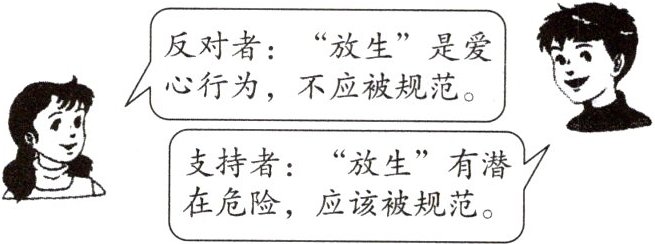 反对者：“放生”是爱
心行为，不应被规范。
支持者：“放生”有潜
在危险，应该被规范。